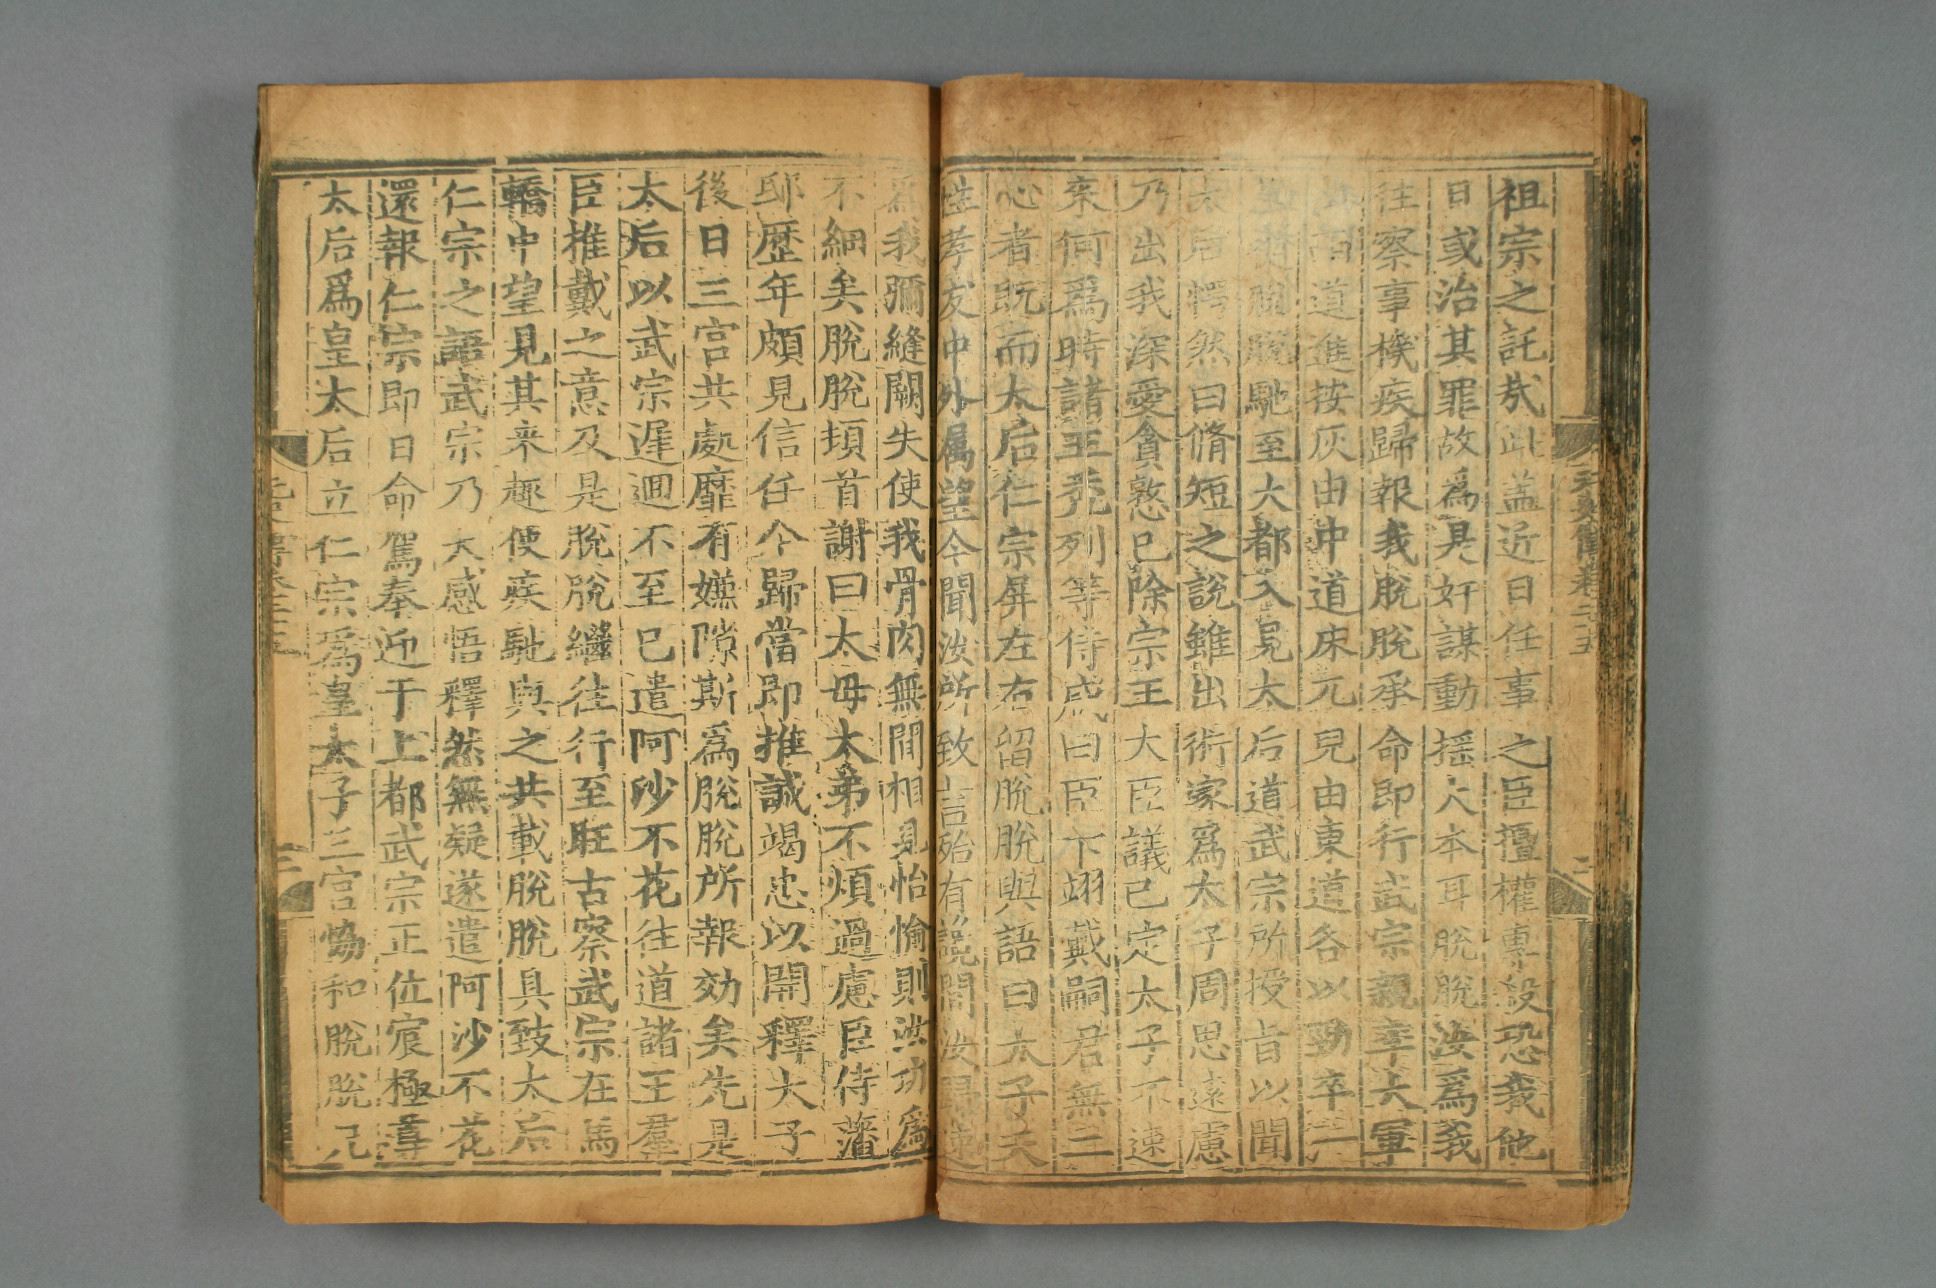 祖宗之託哉此蓋近日任事之臣擅權專殺恐我他
日或治其罪故爲是奸謀動搖大本耳脫脫汝爲我
往察事機疾歸報我脫脫承命即行武宗親率大軍
道進按灰由中道床兀兒由東道各以勁卒一
脫脫馳至大都入見太后道武宗所授旨以聞
太后愕然曰脩短之說雖出術家爲太子周思遠慮
乃出我深愛貪憝已除宗王大臣議已定太子不速
来何爲時諸王禿列等侍咸曰臣下翊戴嗣君無二
心者既而太后仁宗屏左右留脫脫與語曰太子天
性孝友中外属望今聞汝所致言殆有讒間汝歸速
爲我彌縫闕失使我骨肉無間相見怡愉則汝功爲
不細矣脫脫頓首謝曰太母太弟不煩過慮臣侍藩
邸歷年頗見信任今歸當即推誠竭忠以開釋太子
後日三宮共處靡有嫌隙斯爲脫脫所報効矣先是
太后以武宗遲迴不至已遣阿沙不花往道諸王羣
臣推戴之意及是脫脫繼往行至旺古察武宗在馬
轎中望見其来趣使疾馳與之共載脫脫具致太后
仁宗之語武宗乃大感悟釋然無疑遂遣阿沙不花
還報仁宗即日命駕奉迎于上都武宗正位宸極尊
太后爲皇太后立仁宗爲皇太子三宮恊和脫脫兄